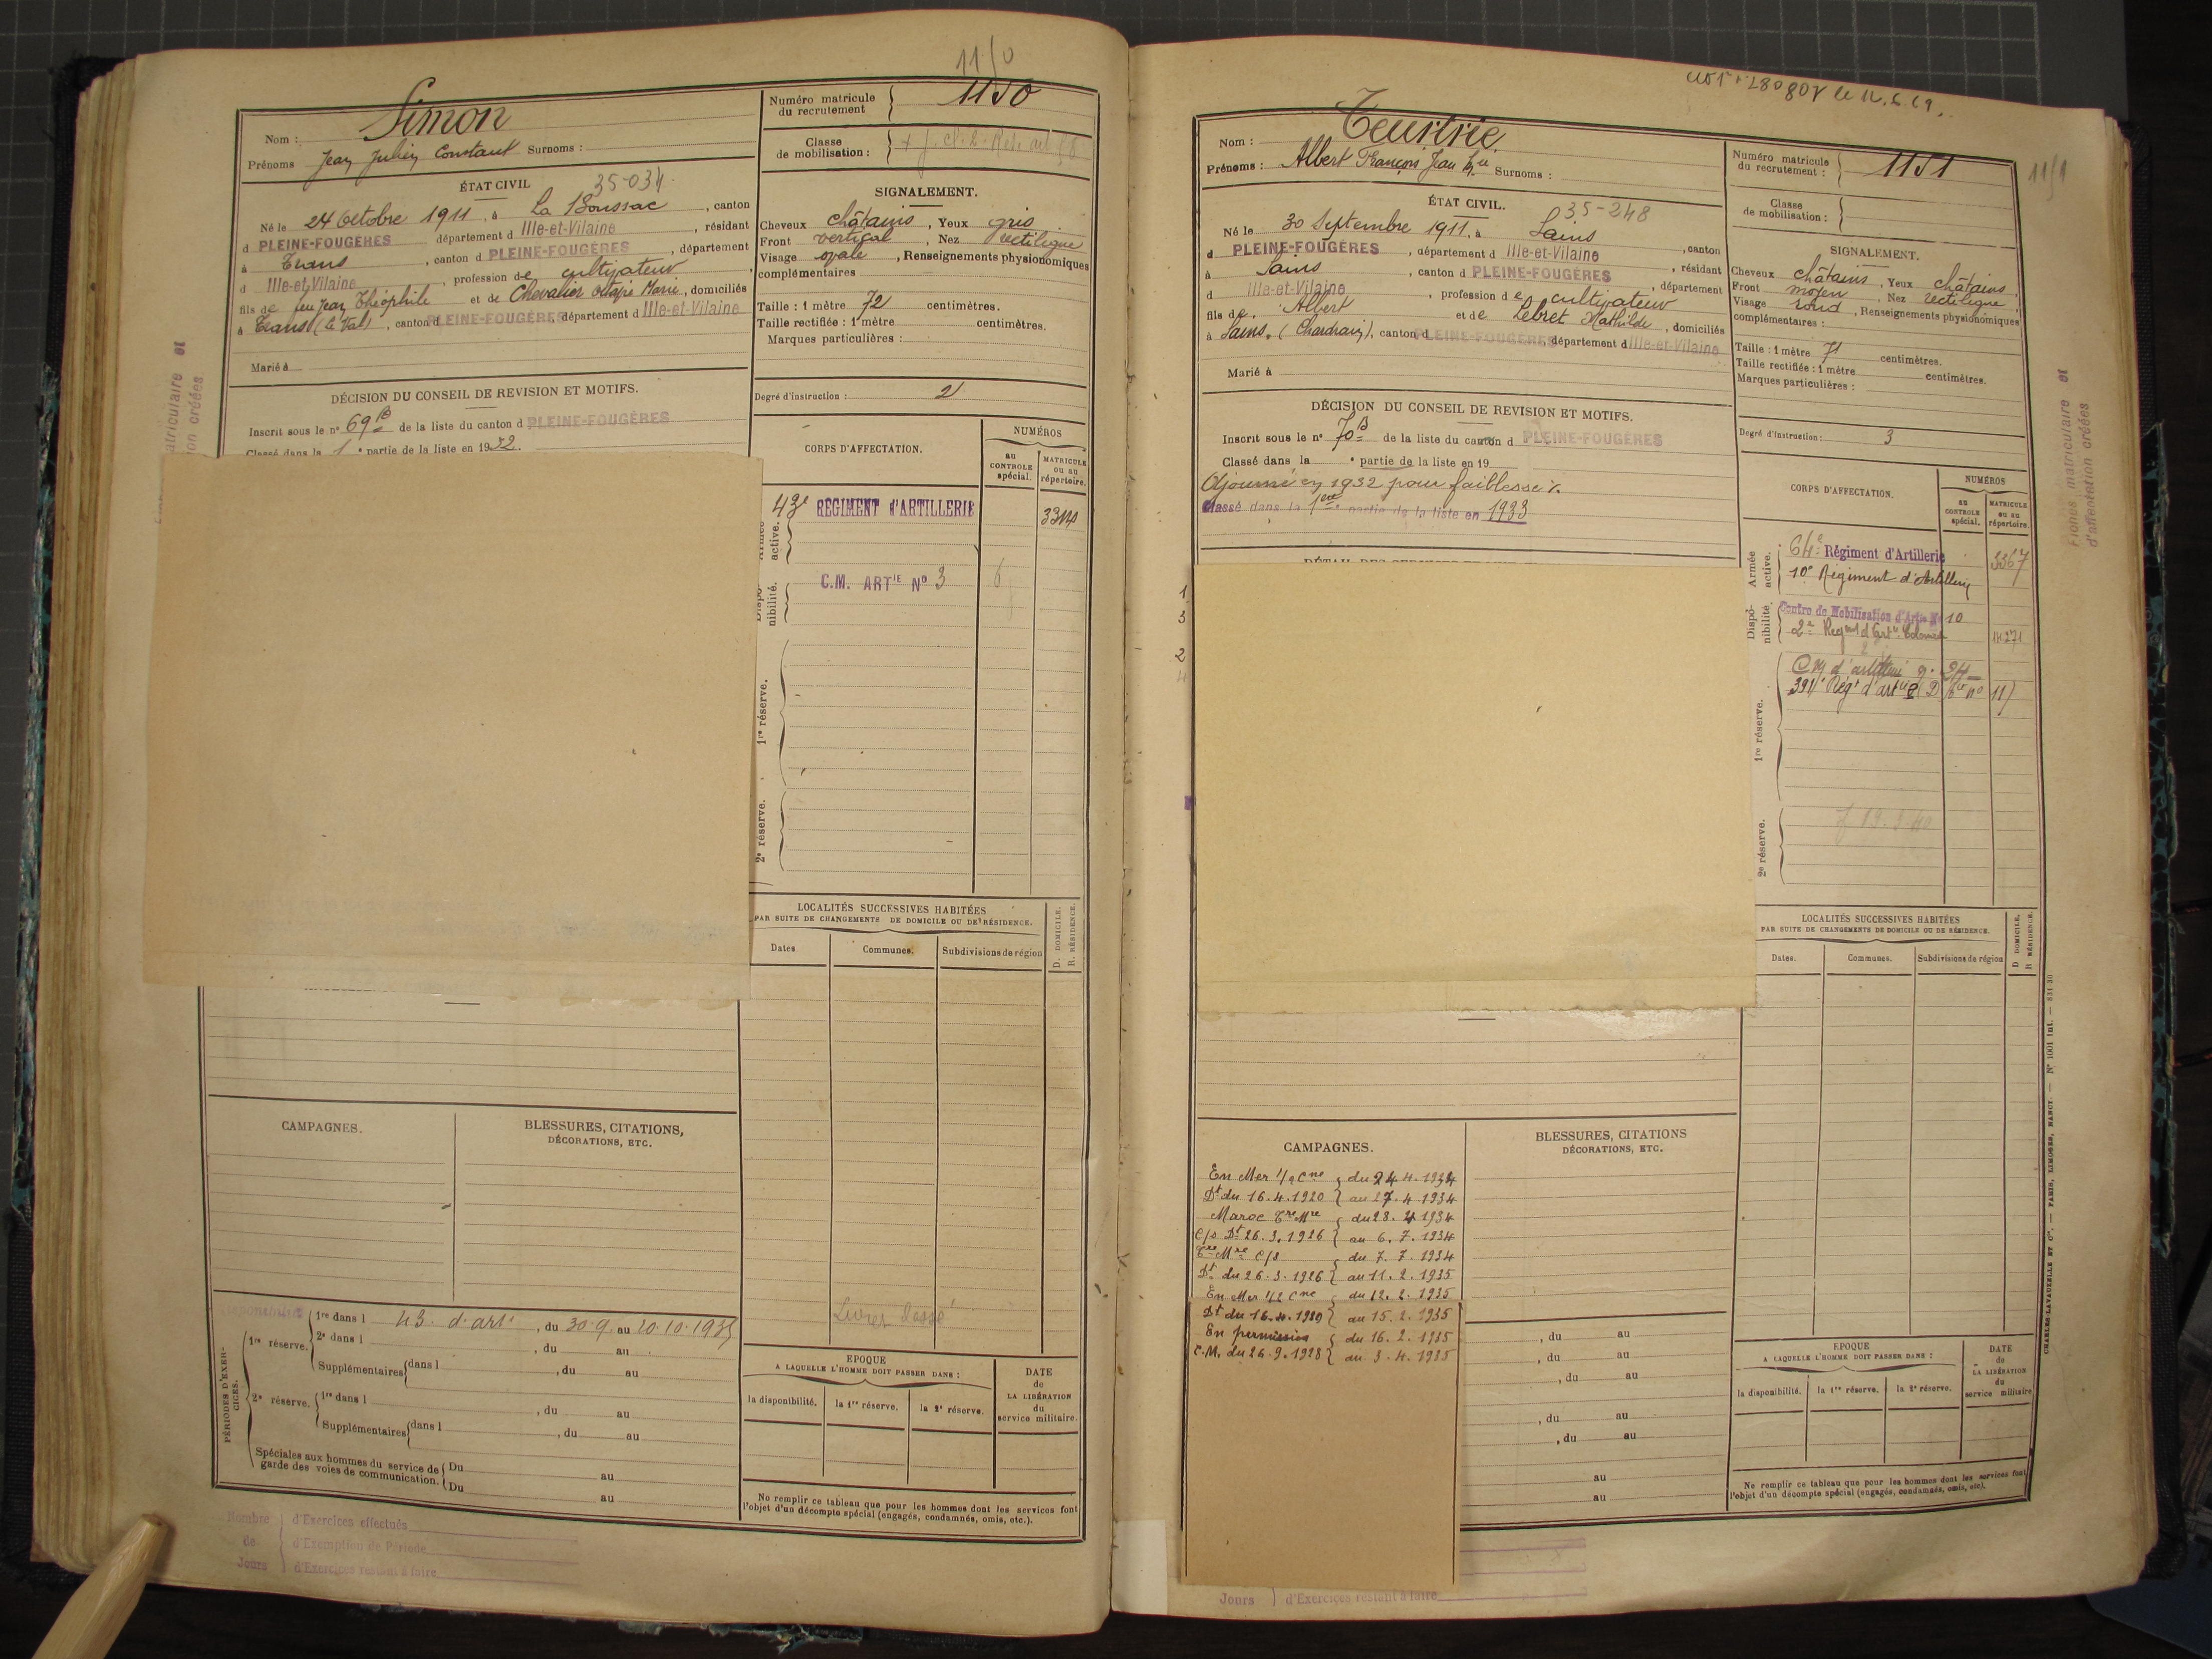 11/0
Nom : Simon
Prénoms Jean Julien Constant Surnoms :
Numéro matricule du recrutement 1150
Classe de mobilisation :
ÉTAT CIVIL 35-034
Né le 24 Octobre 1911, à La Boussac, canton
d PLEINE-FOUGÈRES département d Ille-et-Vilaine, résidant
à Trans, canton d PLEINE-FOUGÈRES, département
d Ille-et-Vilaine, profession de cultivateur
fils de feu Jean Théophile et de Chevalier Octavie Marie, domiciliés
à Trans (le Val), canton d PLEINE-FOUGÈRES, département d Ille-et-Vilaine
Marié à
SIGNALEMENT.
Cheveux châtains, Yeux gris
Front vertical, Nez rectiligne
Visage ovale, Renseignements physionomiques
complémentaires
Taille : 1 mètre 72 centimètres.
Taille rectifiée : 1 mètre centimètres.
Marques particulières :
Degré d'instruction : 2
DÉCISION DU CONSEIL DE REVISION ET MOTIFS.
Inscrit sous le n° 69 B de la liste du canton d PLEINE-FOUGÈRES
Classé dans la 1 e partie de la liste en 1932.
CORPS D'AFFECTATION.
NUMÉROS
au CONTROLE spécial.
MATRICULE ou au répertoire.
active.
43e RÉGIMENT d'ARTILLERIE
Disponibilité.
C.M. ARTIE N° 3 6
1re réserve.
2e réserve.
LOCALITÉS SUCCESSIVES HABITÉES
PAR SUITE DE CHANGEMENTS DE DOMICILE OU DE RÉSIDENCE.
Dates.
Communes.
Subdivisions de région
D. DOMICILE.
R. RÉSIDENCE.
CAMPAGNES.
BLESSURES, CITATIONS, DÉCORATIONS, ETC.
PÉRIODES D'EXERCICES.
1re réserve.
1re dans l 43. d'art, du 30.9. au 20.10.1935
2e dans l, du au
Supplémentaires dans l, du au
2e réserve.
1re dans l, du au
Supplémentaires dans l, du au
Spéciales aux hommes du service de garde des voies de communication.
Du au
Du au
EPOQUE
A LAQUELLE L'HOMME DOIT PASSER DANS :
la disponibilité.
la 1re réserve.
la 2e réserve.
DATE de LA LIBÉRATION du service militaire.
Ne remplir ce tableau que pour les hommes dont les services font
l'objet d'un décompte spécial (engagés, condamnés, omis, etc.).
Nombre de Jours
d'Exercices effectués
d'Exemption de Période
d'Exercices restant à faire
Nom :
Prénoms : Albert François Jean Surnoms :
Numéro matricule du recrutement : 1151
11/1
Classe de mobilisation :
ÉTAT CIVIL. 35-248
Né le 30 Septembre 1911, à Sains
d PLEINE-FOUGÈRES, département d Ille-et-Vilaine, canton
à Sains, canton d PLEINE-FOUGÈRES, résidant
d Ille-et-Vilaine, profession de cultivateur, département
fils de Albert et de Lebret Mathilde, domiciliés
à Sains, canton d PLEINE-FOUGÈRES, département d Ille-et-Vilaine
Marié à
SIGNALEMENT.
Cheveux châtains, Yeux châtains
Front moyen, Nez rectiligne
Visage rond, Renseignements physionomiques
complémentaires :
Taille : 1 mètre 71 centimètres.
Taille rectifiée : 1 mètre centimètres.
Marques particulières :
Degré d'instruction : 3
Fiches matriculaire et
d'affectation créées
DÉCISION DU CONSEIL DE REVISION ET MOTIFS.
Inscrit sous le n° 70 B de la liste du canton d PLEINE-FOUGÈRES
Classé dans la e partie de la liste en 19
Ajourné en 1932 pour faiblesse
Classé dans la 1ere partie de la liste en 1933
CORPS D'AFFECTATION.
NUMÉROS
au CONTROLE spécial.
MATRICULE ou au répertoire.
Armée active.
64e Régiment d'Artillerie 3367
10e Régiment d'Artillerie
Disponibilité.
Centre de Mobilisation d'Artie N° 10
2e Regt d'Artie Coloniale
1re réserve.
CM d'artillerie
391e Régt d'artie
2e réserve.
LOCALITÉS SUCCESSIVES HABITÉES
PAR SUITE DE CHANGEMENTS DE DOMICILE OU DE RÉSIDENCE.
Dates.
Communes.
Subdivisions de région
D DOMICILE.
R RÉSIDENCE.
CAMPAGNES.
En Mer 1/2 Cne du 24.4.1934
Dt du 16.4.1920 au 27.4.1934
Maroc Tre Mre du 28.4.1934
C/s Dt 26.3.1926 au 6.7.1934
Tre Mre C/s du 7.7.1934
Dt du 26.3.1926 au 11.2.1935
En Mer 1/2 Cne du 12.2.1935
Dt du 16.4.1920 au 15.2.1935
En permission du 16.2.1935
C.M. du 26.9.1928 au 3.4.1935
BLESSURES, CITATIONS DÉCORATIONS, ETC.
, du au
, du au
, du au
, du au
, du au
au
au
EPOQUE
A LAQUELLE L'HOMME DOIT PASSER DANS :
la disponibilité.
la 1re réserve.
la 2e réserve.
DATE de LA LIBÉRATION du service militaire
Ne remplir ce tableau que pour les hommes dont les services font
l'objet d'un décompte spécial (engagés, condamnés, omis, etc).
Jours d'Exercices restant à faire
CHARLES-LAVAUZELLE ET Cie. — PARIS, LIMOGES, NANCY. — N° 1001 Int. — 831-30